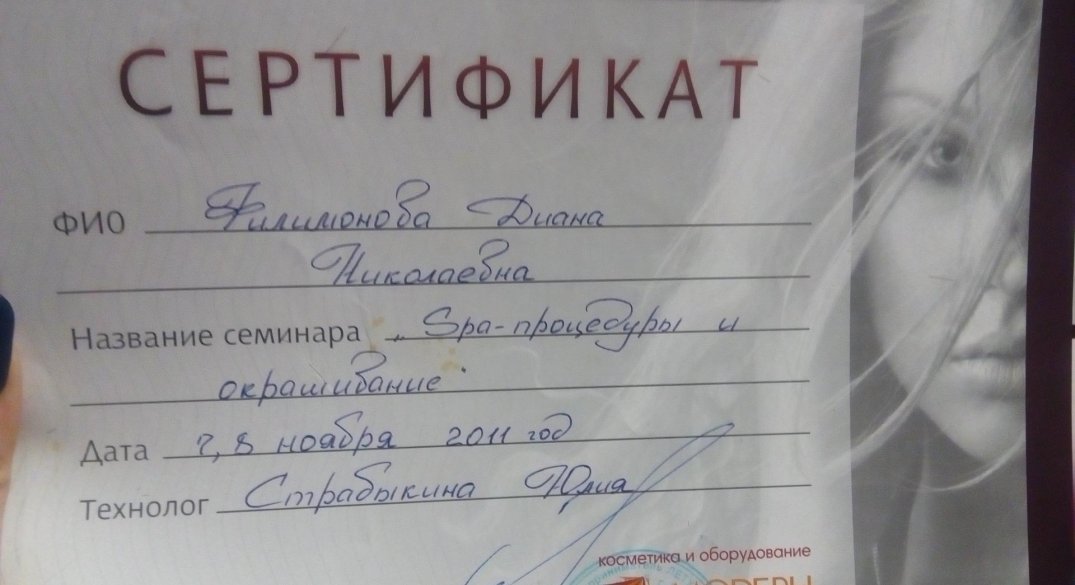 СЕРТИФИКАТ
ФИО Филимонова Диана
Николаевна
Название семинара „Spa-процедуры и
окрашивание"
Дата 7, 8 ноября 2011 год
Технолог Страбыкина Юлия
косметика и оборудование